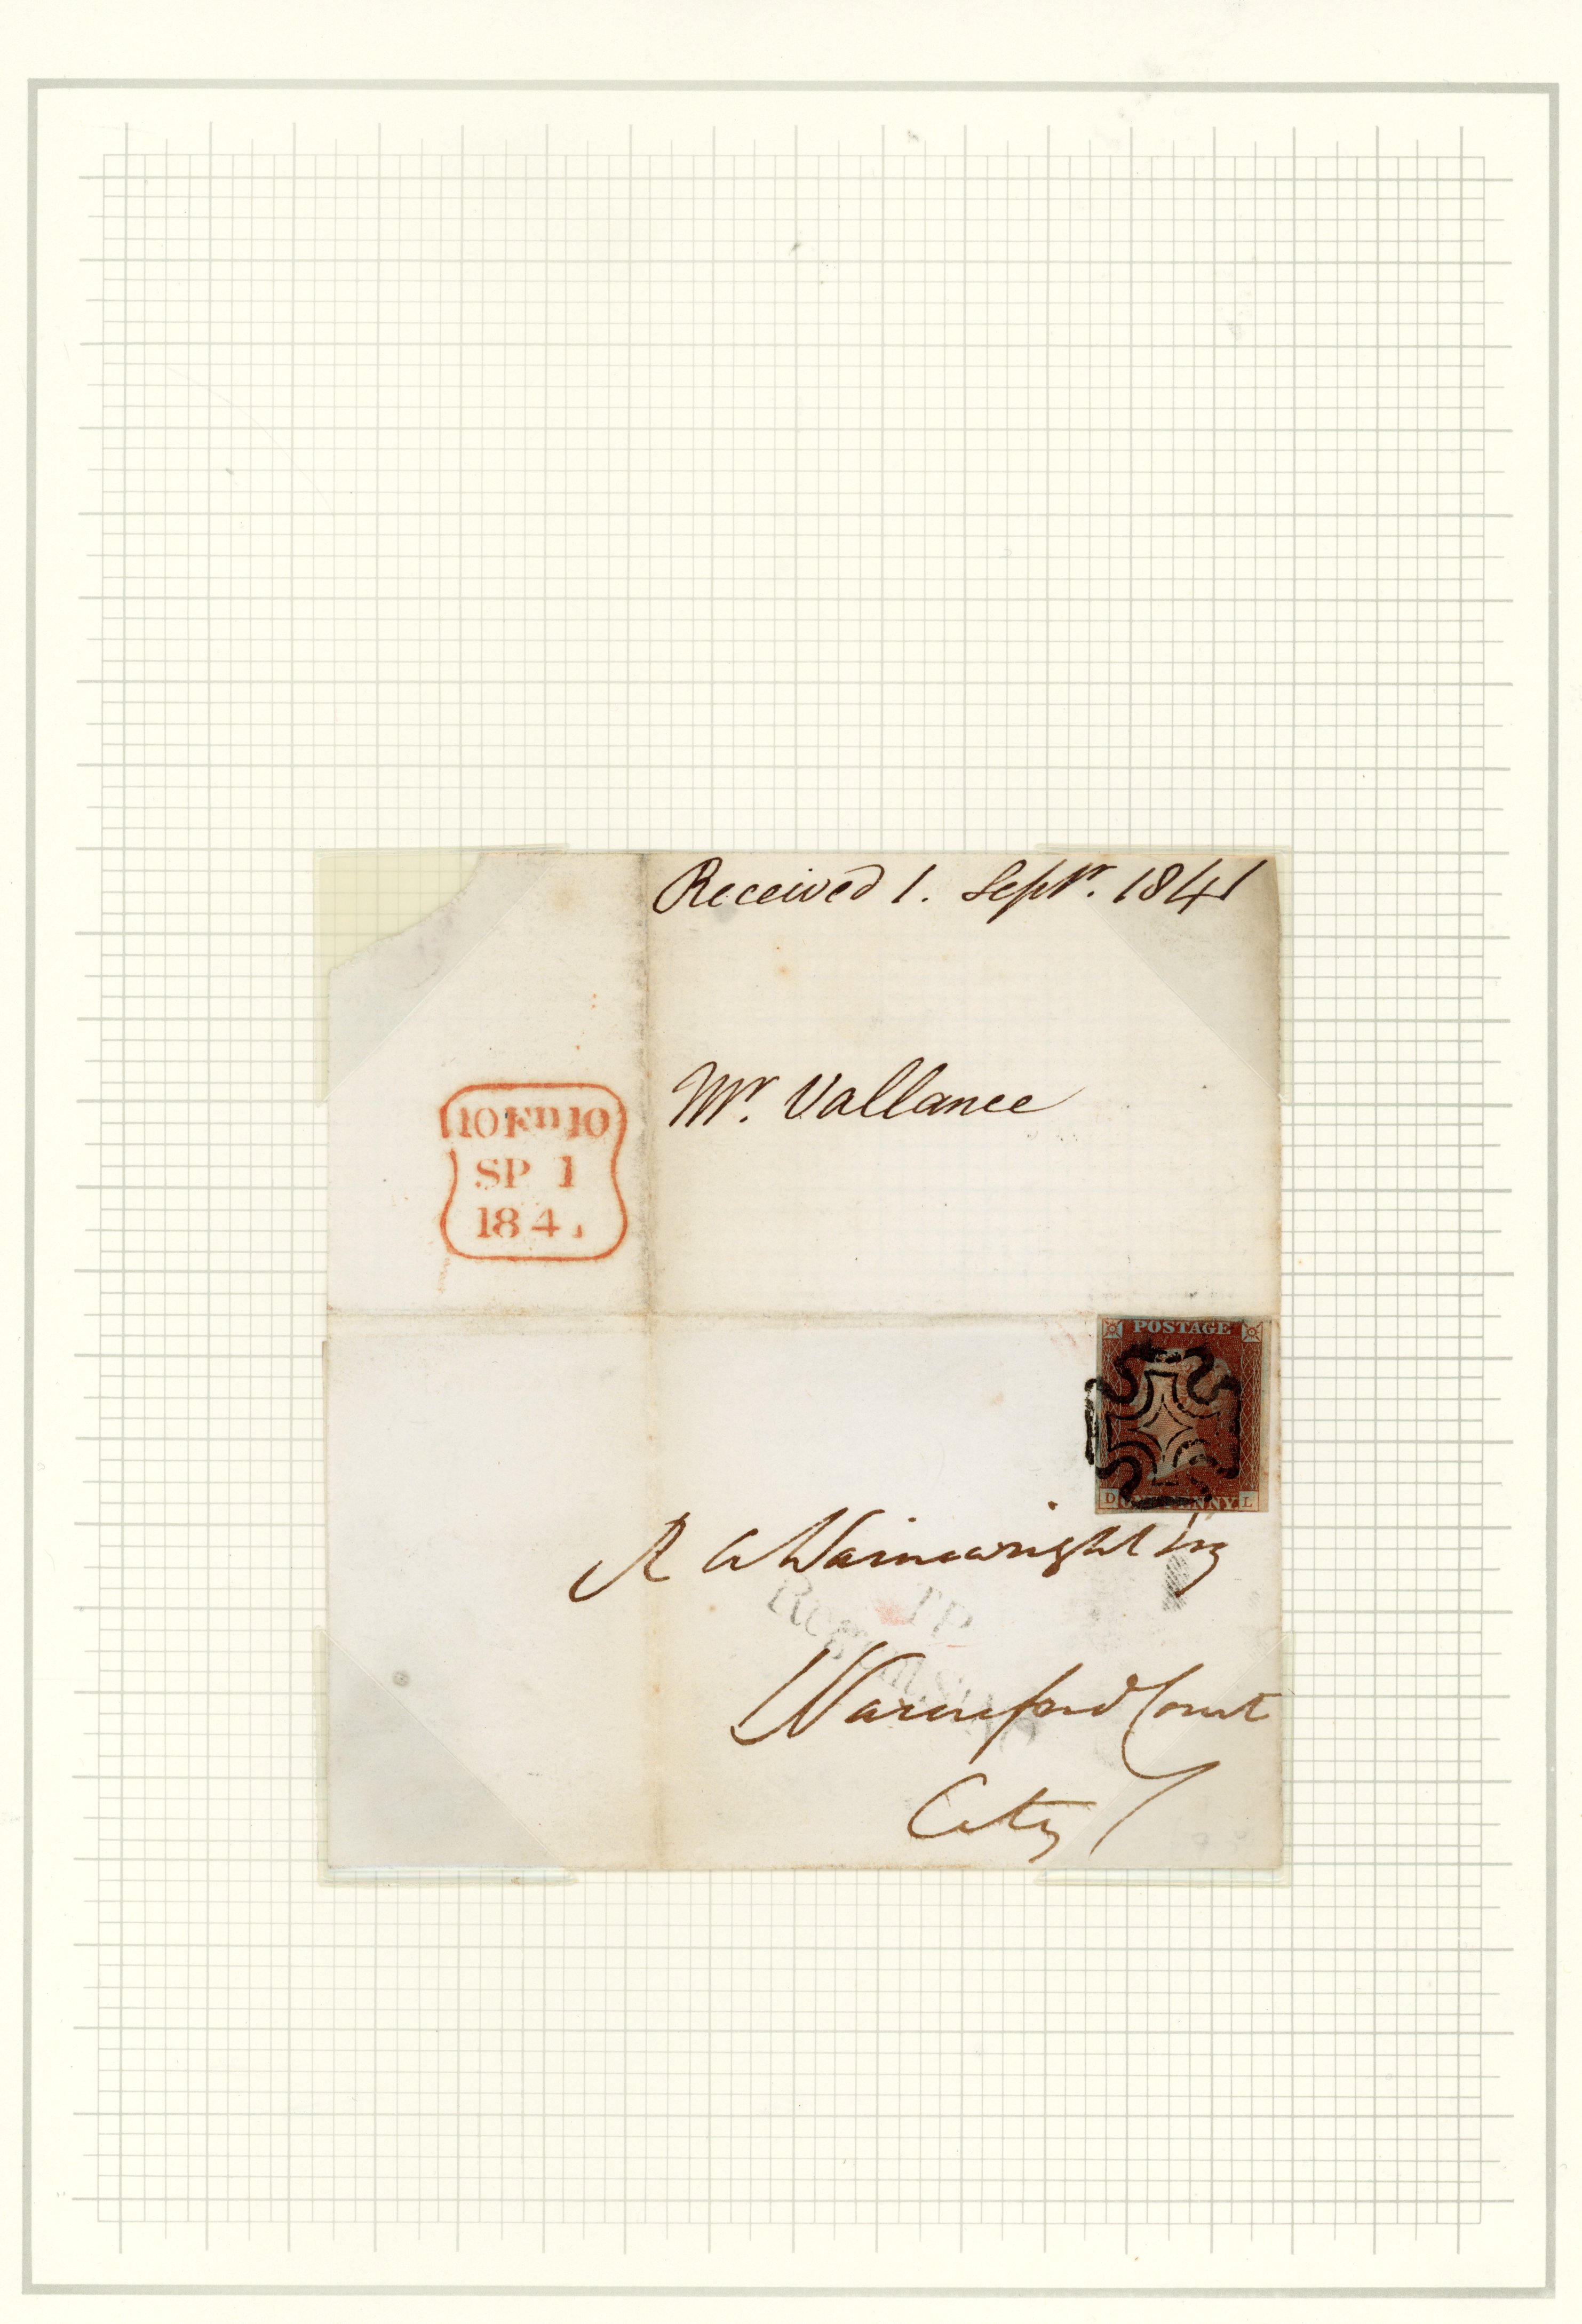 Received 1. Septr. 1841
Mr. Vallance
10 FN 10
SP 1
184
POSTAGE
D ONE PENNY L
R A Wainwright Esq
TP
Warnford Court
City